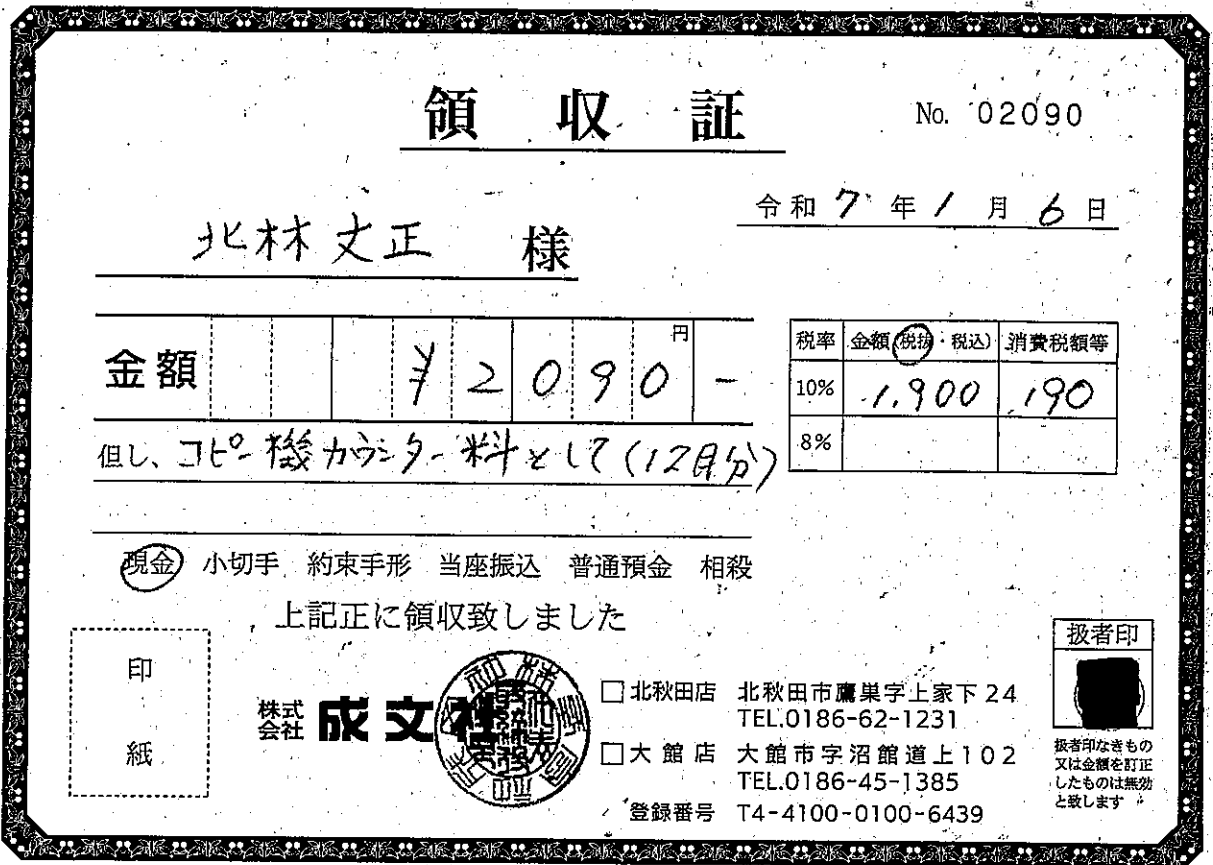 領収証
No. 02090
令和 7 年 1 月 6 日
北林丈正 様
金額 ¥2090- 円
税率 金額(税抜・税込) 消費税額等
10% 1,900 190
8%
但し、コピー機カウンター料として(12月分)
現金 小切手 約束手形 当座振込 普通預金 相殺
上記正に領収致しました
印紙
株式会社 成文社
□北秋田店 北秋田市鷹巣字上家下24
TEL.0186-62-1231
□大館店 大館市字沼館道上102
TEL.0186-45-1385
登録番号 T4-4100-0100-6439
扱者印
扱者印なきもの
又は金額を訂正
したものは無効
と致します